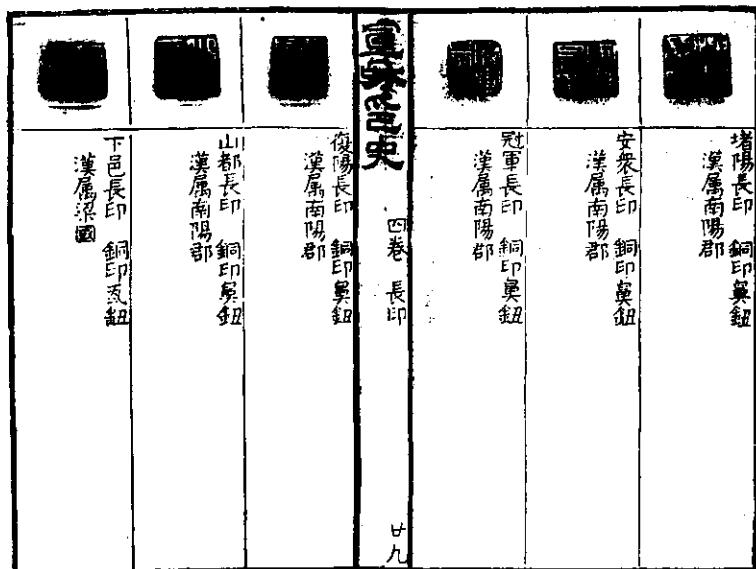 堵陽長印 銅印鼻鈕
漢属南陽郡
安衆長印 銅印鼻鈕
漢属南陽郡
冠軍長印 銅印鼻鈕
漢属南陽郡
四卷 長印
廿九
復陽長印 銅印鼻鈕
漢属南陽郡
山都長印 銅印鼻鈕
漢属南陽郡
下邑長印 銅印瓦鈕
漢属梁國